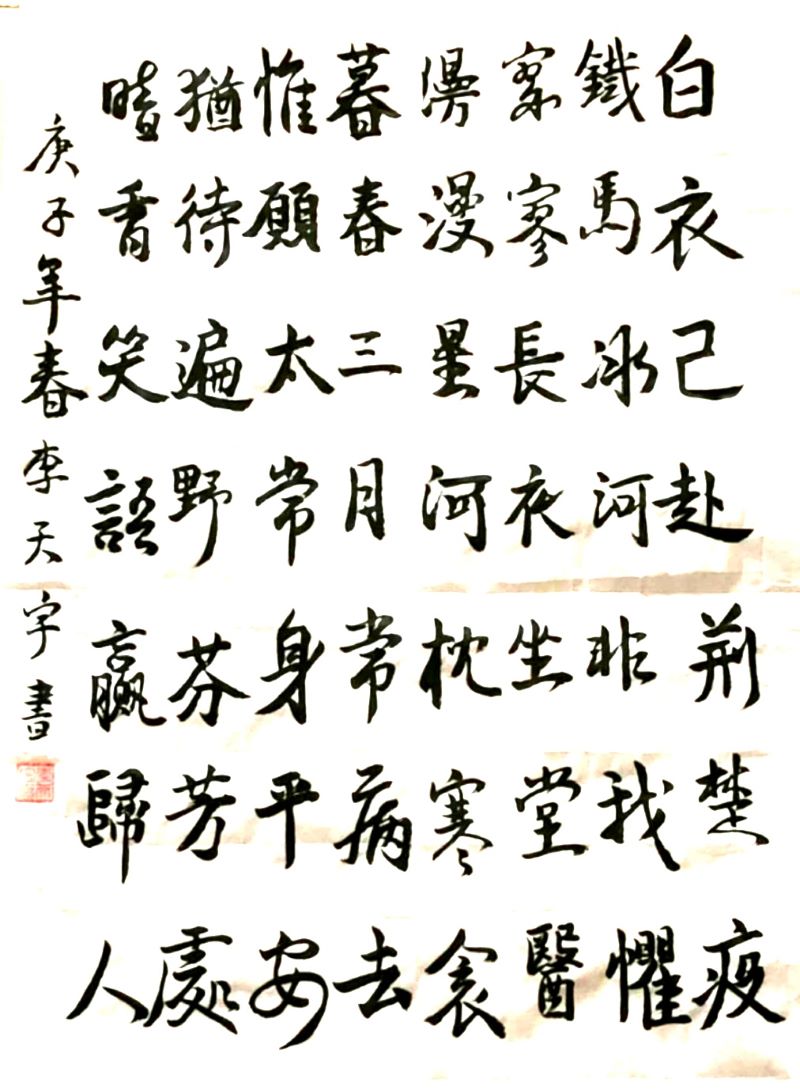 白衣己赴荆楚疫
鐵馬冰河非我懼
寂寥長夜坐堂醫
漫漫星河枕寒衾
暮春三月常病去
惟願太常身平安
猶待遍野芬芳處
暗香笑語贏歸人
庚子年春李天宇書